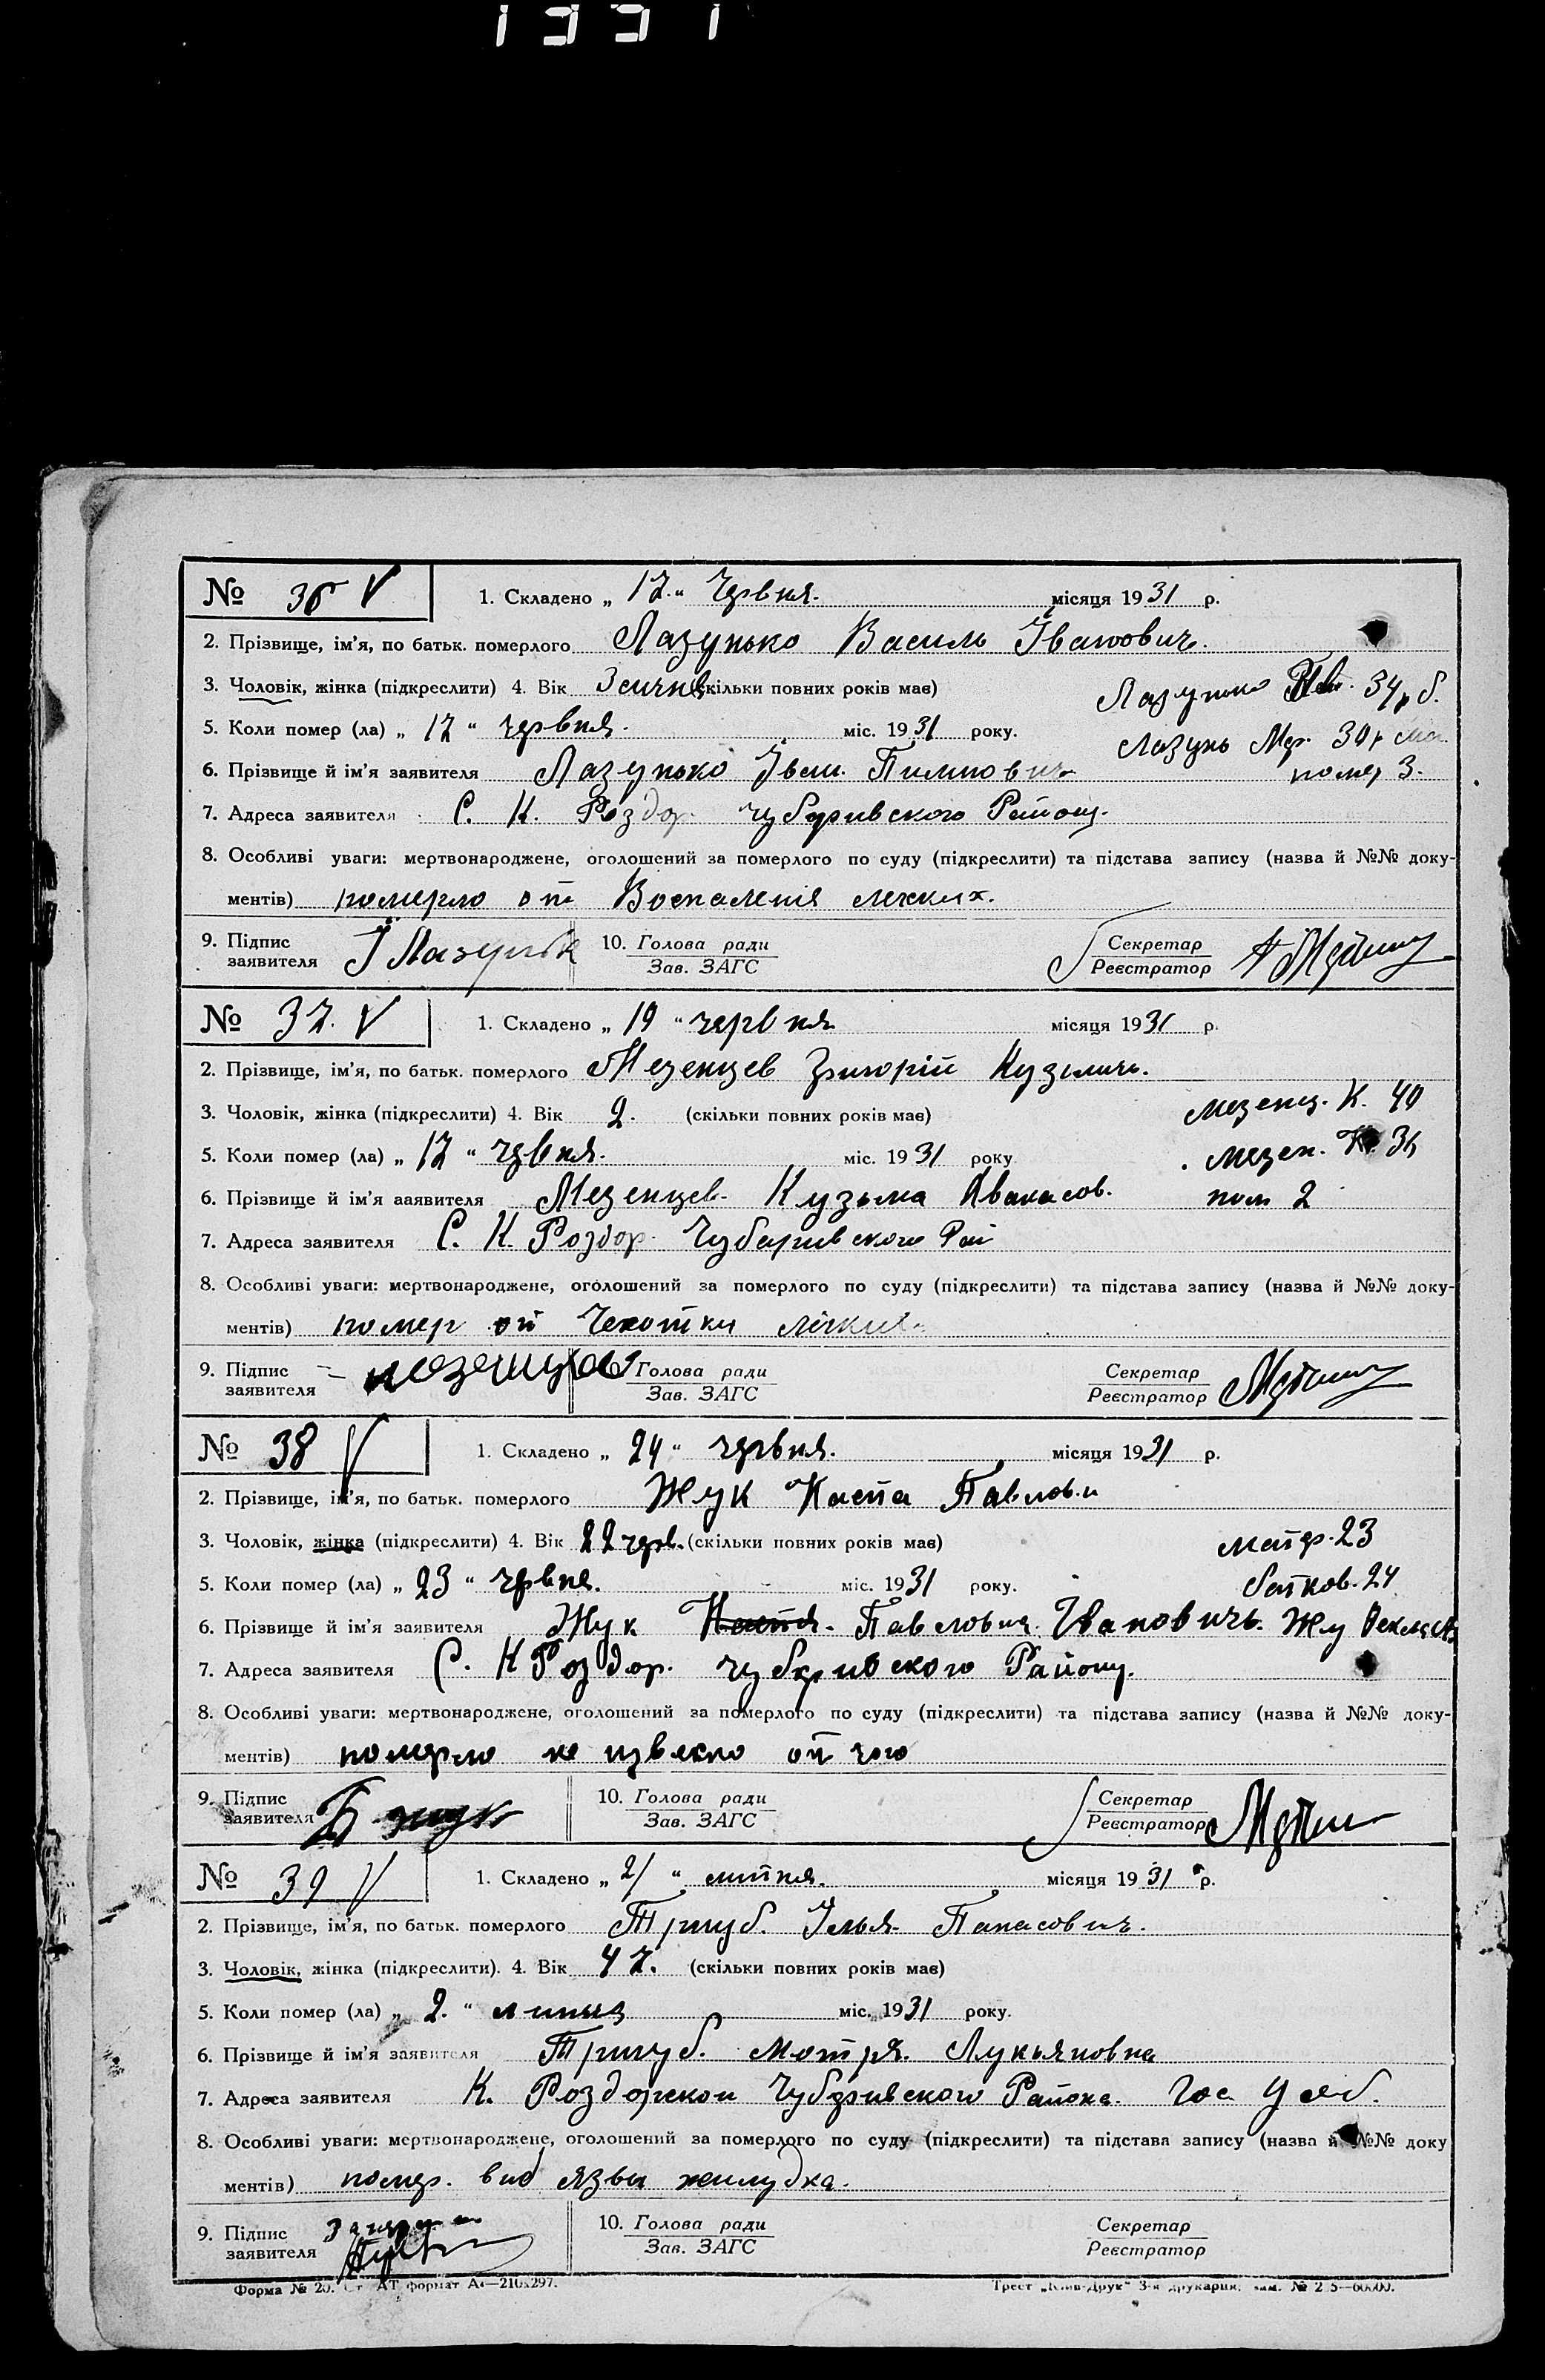 1331
№ 36 V 1. Складено „ 17 “ червня. місяця 1931 р.
2. Прізвище, ім'я, по батьк. померлого Лазунько Василь Іванович.
3. Чоловік, жінка (підкреслити) 4. Вік 3 січня (скільки повних років має)
Лазунько 34 р б.
5. Коли помер (ла) „ 17 “ червня. міс. 1931 року.
Лазунь Мер. 30 р
6. Прізвище й ім'я заявителя Лазунько Іван Пилипович
помер 3.
7. Адреса заявителя С. К. Роздор. Чубарівского Району.
8. Особливі уваги: мертвонароджене, оголошений за померлого по суду (підкреслити) та підстава запису (назва й №№ доку-
ментів) померло от Воспаленія легких.
9. Підпис заявителя І Лазунько 10. Голова ради Зав. ЗАГС Секретар Реєстратор
№ 37. V 1. Складено „ 19 “ червня місяця 1931 р.
2. Прізвище, ім'я, по батьк. померлого Мезенцев Григорій Кузьмичь.
3. Чоловік, жінка (підкреслити) 4. Вік 2. (скільки повних років має)
мезенц. К. 40
5. Коли помер (ла) „ 17 “ червня. міс. 1931 року
мезен.
6. Прізвище й ім'я заявителя Мезенцев Кузьма
пом 2
7. Адреса заявителя С. К. Роздор. Чубарівского Рай
8. Особливі уваги: мертвонароджене, оголошений за померлого по суду (підкреслити) та підстава запису (назва й №№ доку-
ментів) помер от Чехотки легких
9. Підпис заявителя мезенцев 10. Голова ради Зав. ЗАГС Секретар Реєстратор
№ 38 V 1. Складено „ 24 “ червня. місяця 1931 р.
2. Прізвище, ім'я, по батьк. померлого Жук Настя Павлов.
3. Чоловік, жінка (підкреслити) 4. Вік 22 черв. (скільки повних років має)
матер. 23
5. Коли помер (ла) „ 23 “ червня. міс. 1931 року.
батьков. 24
6. Прізвище й ім'я заявителя Жук Настя. Павловна Івановичь. Жу
7. Адреса заявителя С. К Роздор. Чубарівского Району.
8. Особливі уваги: мертвонароджене, оголошений за померлого по суду (підкреслити) та підстава запису (назва й №№ доку-
ментів) померло не извесно от чого
9. Підпис заявителя жук 10. Голова ради Зав. ЗАГС Секретар Реєстратор
№ 39 V 1. Складено „ 2 “ липня. місяця 1931 р.
2. Прізвище, ім'я, по батьк. померлого Тригуб. Ілья Панасович.
3. Чоловік, жінка (підкреслити). 4. Вік 47. (скільки повних років має)
5. Коли помер (ла) „ 2. “ липня міс. 1931 року.
6. Прізвище й ім'я заявителя Тригуб. Мотря. Лукьяновна
7. Адреса заявителя К. Роздорской Чубарівского Района.
8. Особливі уваги: мертвонароджене, оголошений за померлого по суду (підкреслити) та підстава запису (назва й №№ доку
ментів) помер. від язвы жилудка.
9. Підпис заявителя 10. Голова ради Зав. ЗАГС Секретар Реєстратор
Форма № 20. Ст. АТ формат А4—210x297. Трест „Київ-Друк“ 3-я друкарня,